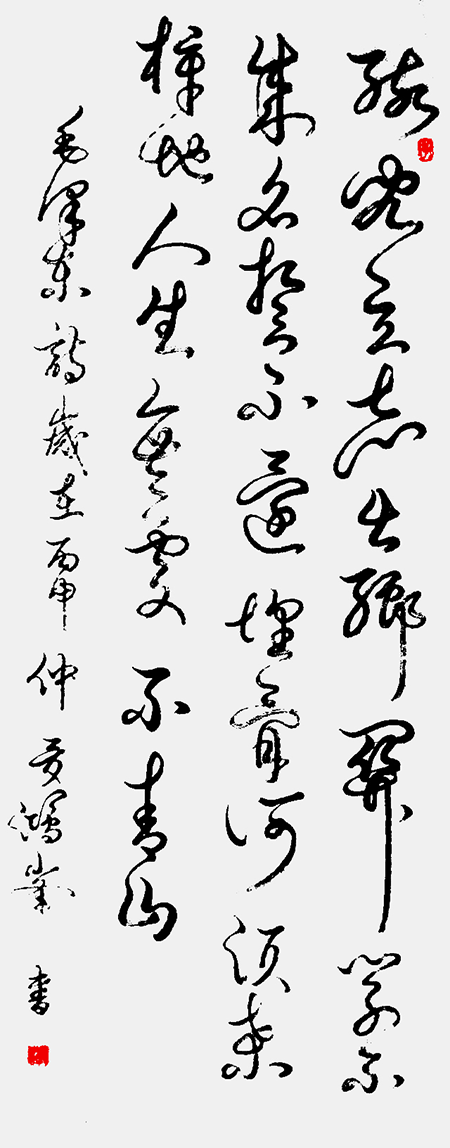 孩兒立志出鄉關學不
成名誓不還埋骨何須桑
梓地人生無處不青山
毛澤東詩歲在丙申仲夏鴻峯書